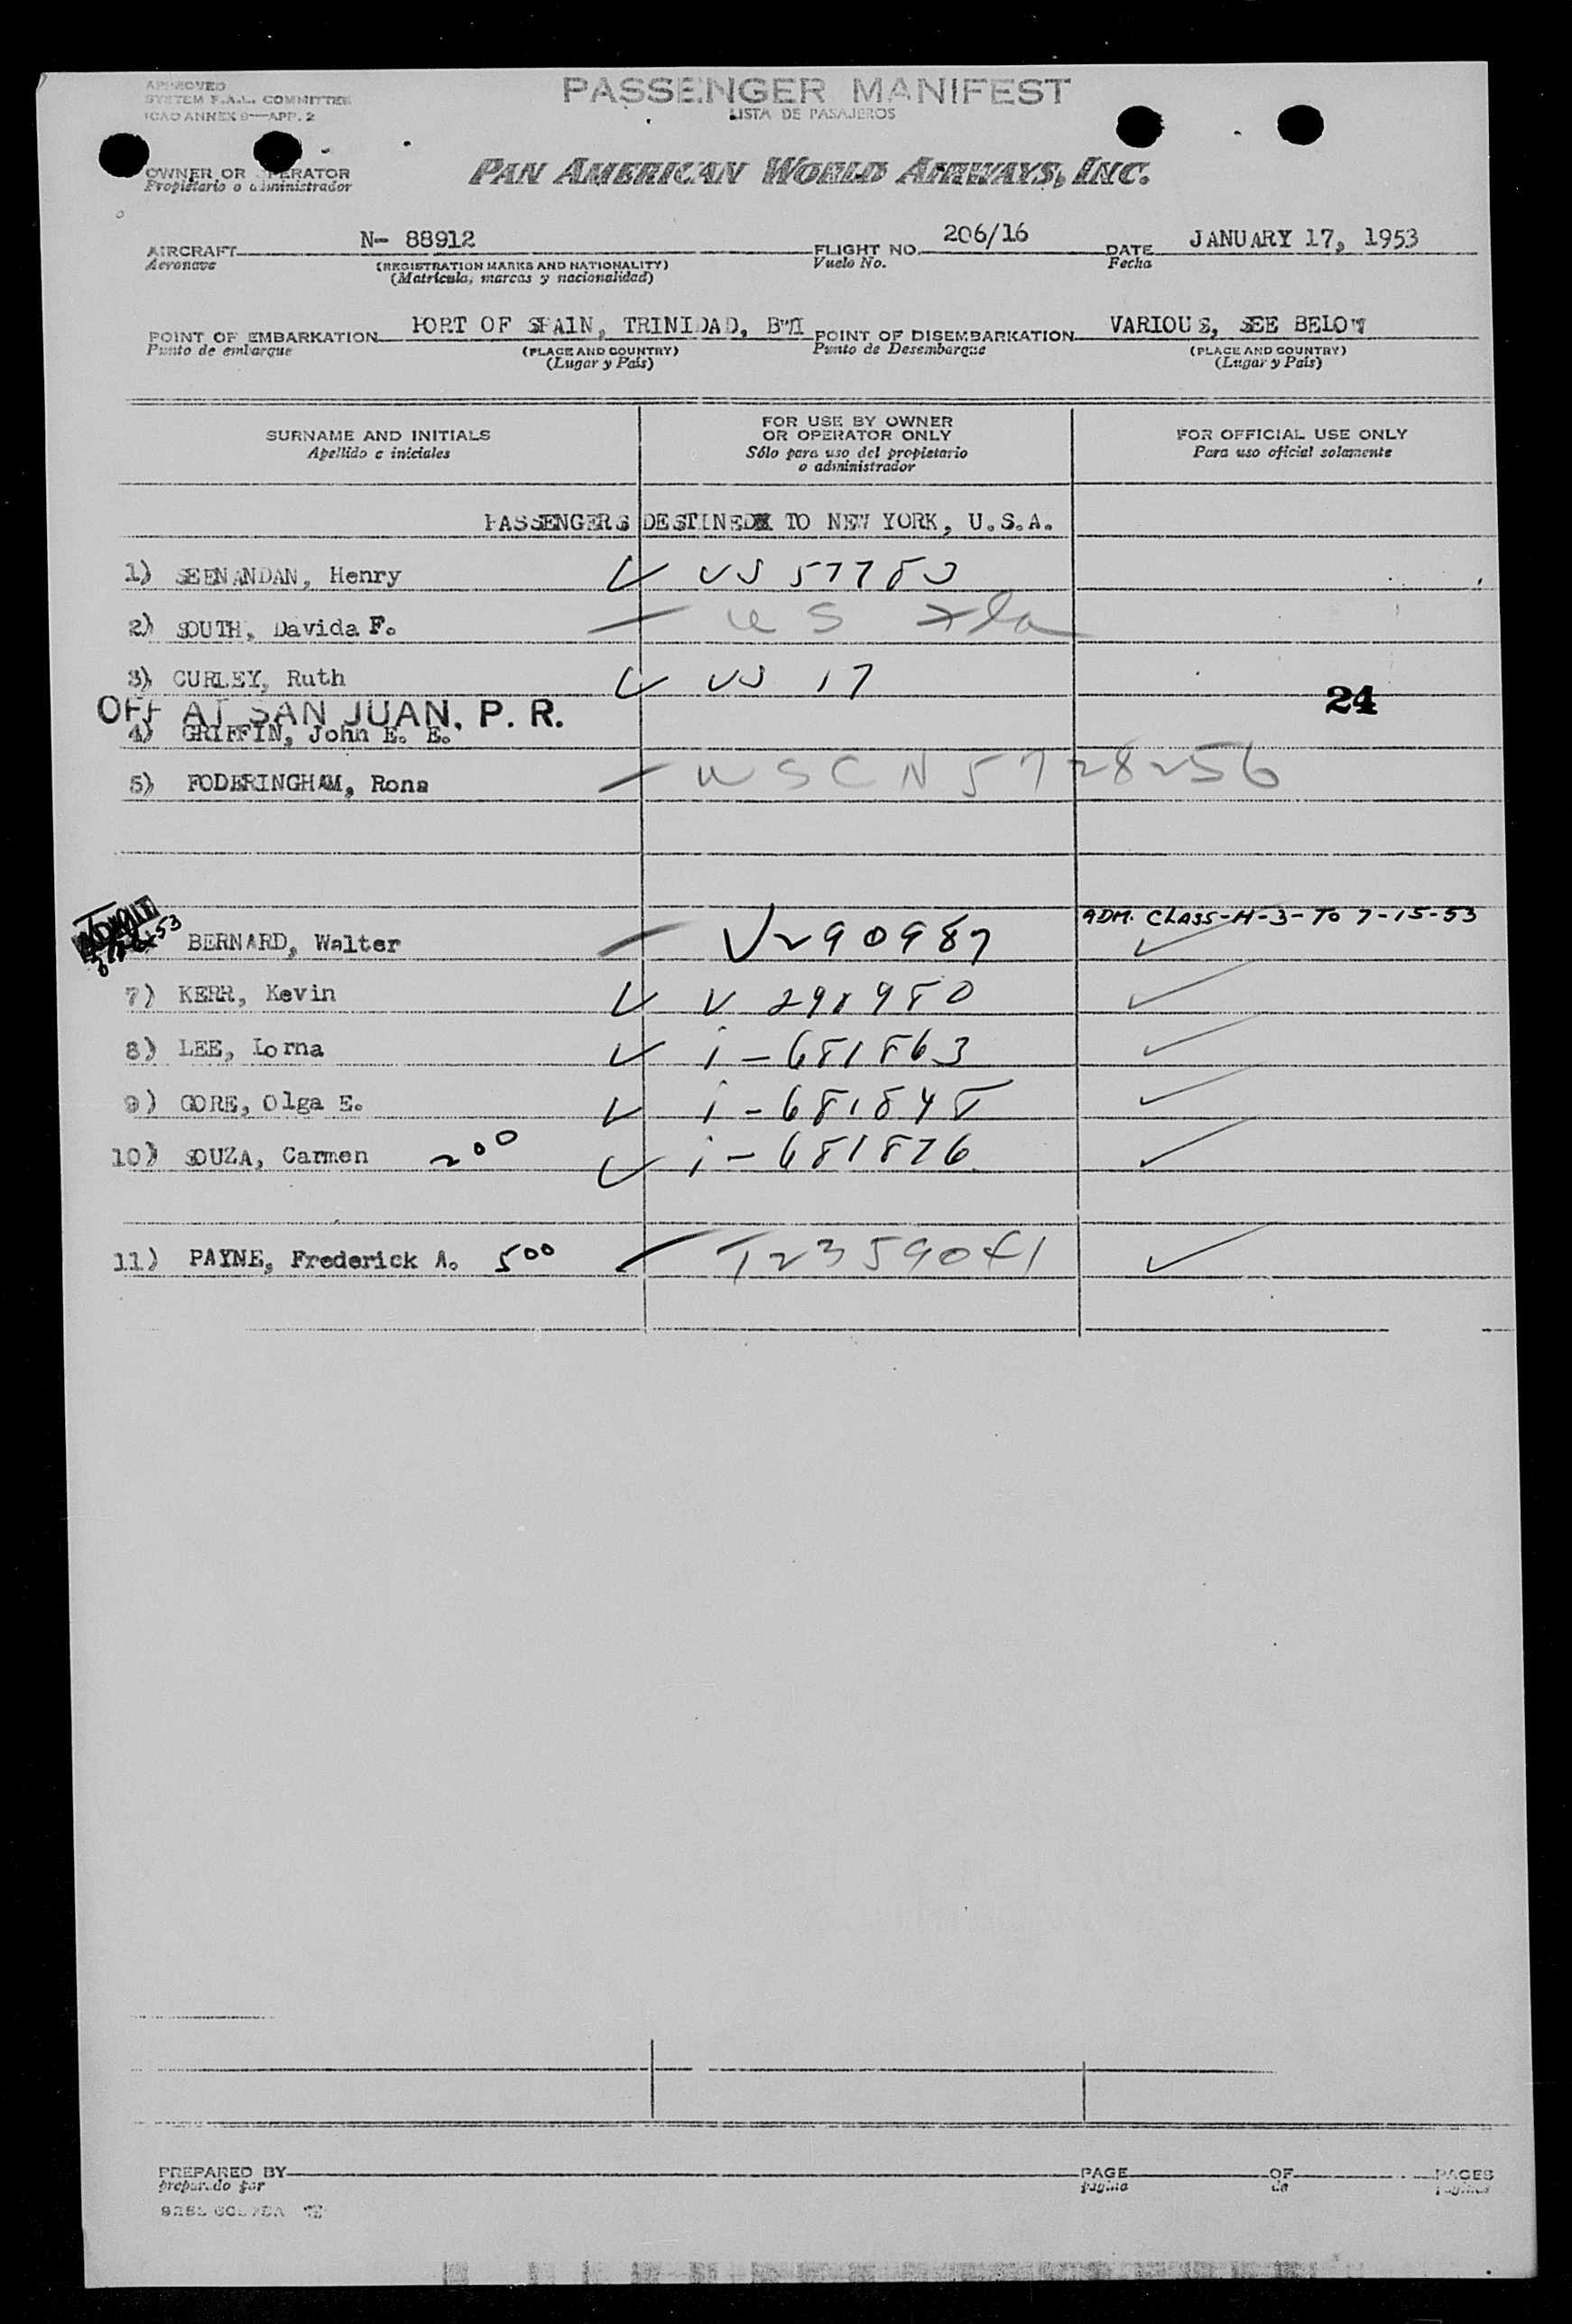 APPROVED
SYSTEM F.A.L. COMMITTEE
ICAO ANNEX 9—APP. 2
PASSENGER MANIFEST
LISTA DE PASAJEROS
OWNER OR OPERATOR
Propietario o administrador
PAN AMERICAN WORLD AIRWAYS, INC.
AIRCRAFT N- 88912 FLIGHT NO. 206/16 DATE JANUARY 17, 1953
Aeronave (REGISTRATION MARKS AND NATIONALITY) Vuelo No. Fecha
(Matrícula, marcas y nacionalidad)
POINT OF EMBARKATION PORT OF SPAIN, TRINIDAD, BWI POINT OF DISEMBARKATION VARIOUS, SEE BELOW
Punto de embarque (PLACE AND COUNTRY) Punto de Desembarque (PLACE AND COUNTRY)
(Lugar y País) (Lugar y País)
SURNAME AND INITIALS FOR USE BY OWNER OR OPERATOR ONLY FOR OFFICIAL USE ONLY
Apellido e iniciales Sólo para uso del propietario o administrador Para uso oficial solamente
PASSENGERS DESTINED TO NEW YORK, U.S.A.
1) SEENANDAN, Henry
2) SOUTH, Davida F. US
3) CURLEY, Ruth US 17
OFF AT SAN JUAN, P. R. 24
4) GRIFFIN, John E. E.
5) FODERINGHAM, Rona USCN 5728256
ADMIT
BERNARD, Walter V290987 ADM. CLASS-H-3-TO 7-15-53
7) KERR, Kevin V 298980
8) LEE, Lorna i-681863
9) GORE, Olga E. i-681848
10) SOUZA, Carmen 200 i-681876
11) PAYNE, Frederick A. 500 T2359041
PREPARED BY PAGE OF PAGES
preparado por página de páginas